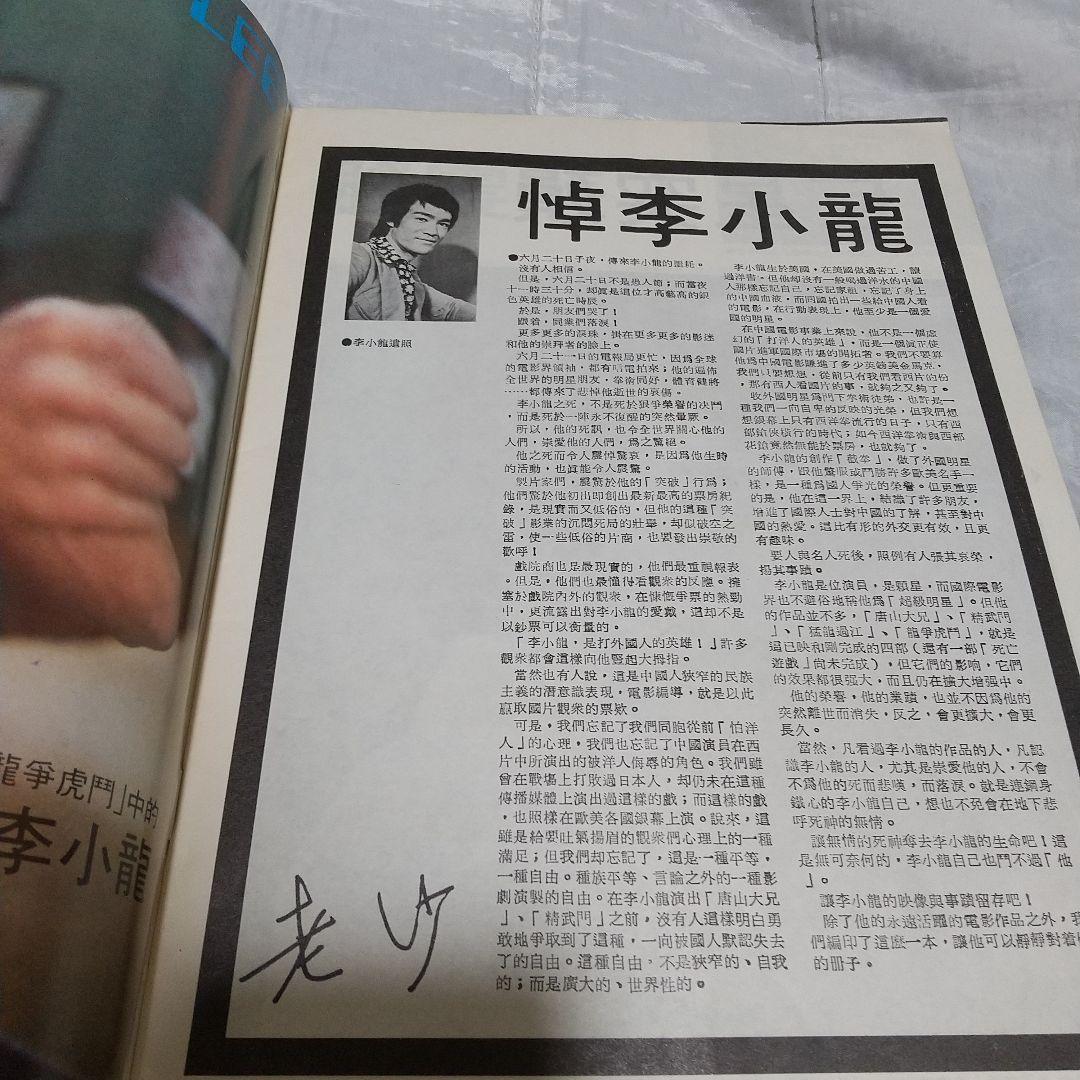 LEE
龍爭虎鬥」中的
李小龍
悼李小龍
●李小龍遺照
●六月二十日子夜，傳來李小龍的噩耗。
沒有人相信。
但是，六月二十日不是愚人節；而當夜
十一時三十分，却眞是這位才高藝高的銀
色英雄的死亡時辰。
於是，朋友們哭了！
跟着，同業們落淚！
更多更多的淚珠，掛在更多更多的影迷
和他的崇拜者的臉上。
六月二十一日的電報局更忙，因爲全球
的電影界領袖，都有唁電拍來；他的遍佈
全世界的明星朋友，拳術同好，體育健將
……都傳來了悲悼他逝世的哀傷。
李小龍之死，不是死於狠爭榮譽的決鬥
，而是死於一陣永不復醒的突然暈厥。
所以，他的死訊，也令全世界關心他的
人們，崇愛他的人們，爲之驚絕。
他之死而令人震悼驚哀，是因爲他生時
的活動，也眞能令人震驚。
製片家們，震驚於他的「突破」行爲；
他們驚於他初出即創出最新最高的票房紀
錄，是現實而又低俗的，但他的這種「突
破」影業的沉悶死局的壯舉，却似破空之
雷，使一些低俗的片商，也要發出崇敬的
歡呼！
戲院商也是最現實的，他們最重視報表
。但是，他們也最懂得看觀衆的反應。擁
塞於戲院內外的觀衆，在慷慨爭票的熱勁
中，更流露出對李小龍的愛戴，這却不是
以鈔票可以衡量的。
「李小龍，是打外國人的英雄！」許多
觀衆都會這樣向他竪起大拇指。
當然也有人說，這是中國人狹窄的民族
主義的潛意識表現，電影編導，就是以此
贏取國片觀衆的票欵。
可是，我們忘記了我們同胞從前「怕洋
人」的心理，我們也忘記了中國演員在西
片中所演出的被洋人侮辱的角色。我們雖
曾在戰場上打敗過日本人，却仍未在這種
傳播媒體上演出過這樣的戲；而這樣的戲
，也照樣在歐美各國銀幕上演。說來，這
雖是給要吐氣揚眉的觀衆們心理上的一種
滿足；但我們却忘記了，這是一種平等，
一種自由。種族平等、言論之外的一種影
劇演製的自由。在李小龍演出「唐山大兄
」、「精武門」之前，沒有人這樣明白勇
敢地爭取到了這種，一向被國人默認失去
了的自由。這種自由，不是狹窄的、自我
的；而是廣大的、世界性的。
李小龍生於美國，在美國做過苦工，讀
過洋書。但他却沒有一般喝過洋水的中國
人那樣忘記自己，忘記家祖，忘記了身上
的中國血液，而回國拍出一些給中國人看
的電影，在行動表現上，他至少是一個愛
國的明星。
在中國電影事業上來說，他不是一個虛
幻的「打洋人的英雄」，而是一個眞正使
國片進軍國際市場的開拓者。我們不要算
他爲中國電影賺進了多少英鎊美金馬克，
我們只要想想，從前只有我們看西片的份
，那有西人看國片的事，就夠之又夠了。
收外國明星爲門下拳術徒弟，也許是一
種我們一向自卑的反映的光榮，但我們想
想銀幕上只有西洋拳流行的日子，只有西
部鎗俠橫行的時代；如今西洋拳術與西部
花鎗竟然無能於票房，也就夠了。
李小龍的創作「截拳」，做了外國明星
的師傅，跟他驚服或鬥勝許多歐美名手一
樣，是一種爲國人爭光的榮譽。但更重要
的是，他在這一界上，結識了許多朋友，
增進了國際人士對中國的了解，甚至對中
國的熱愛。這比有形的外交更有效，且更
有趣味。
要人與名人死後，照例有人張其哀榮，
揚其事蹟。
李小龍是位演員，是顆星，而國際電影
界也不避俗地稱他爲「超級明星」。但他
的作品並不多，「唐山大兄」、「精武門
」、「猛龍過江」、「龍爭虎鬥」，就是
這已映和剛完成的四部（還有一部「死亡
遊戲」尚未完成），但它們的影响，它們
的效果都很強大，而且仍在擴大增强中。
他的榮譽，他的業蹟，也並不因爲他的
突然離世而消失，反之，會更擴大，會更
長久。
當然，凡看過李小龍的作品的人，凡認
識李小龍的人，尤其是崇愛他的人，不會
不爲他的死而悲嘆，而落淚。就是連鋼身
鐵心的李小龍自己，想也不死會在地下悲
呼死神的無情。
讓無情的死神奪去李小龍的生命吧！這
是無可奈何的，李小龍自己也鬥不過「他
」。
讓李小龍的映像與事蹟留存吧！
除了他的永遠活躍的電影作品之外，我
們編印了這麽一本，讓他可以靜靜對着
的册子。
老沙